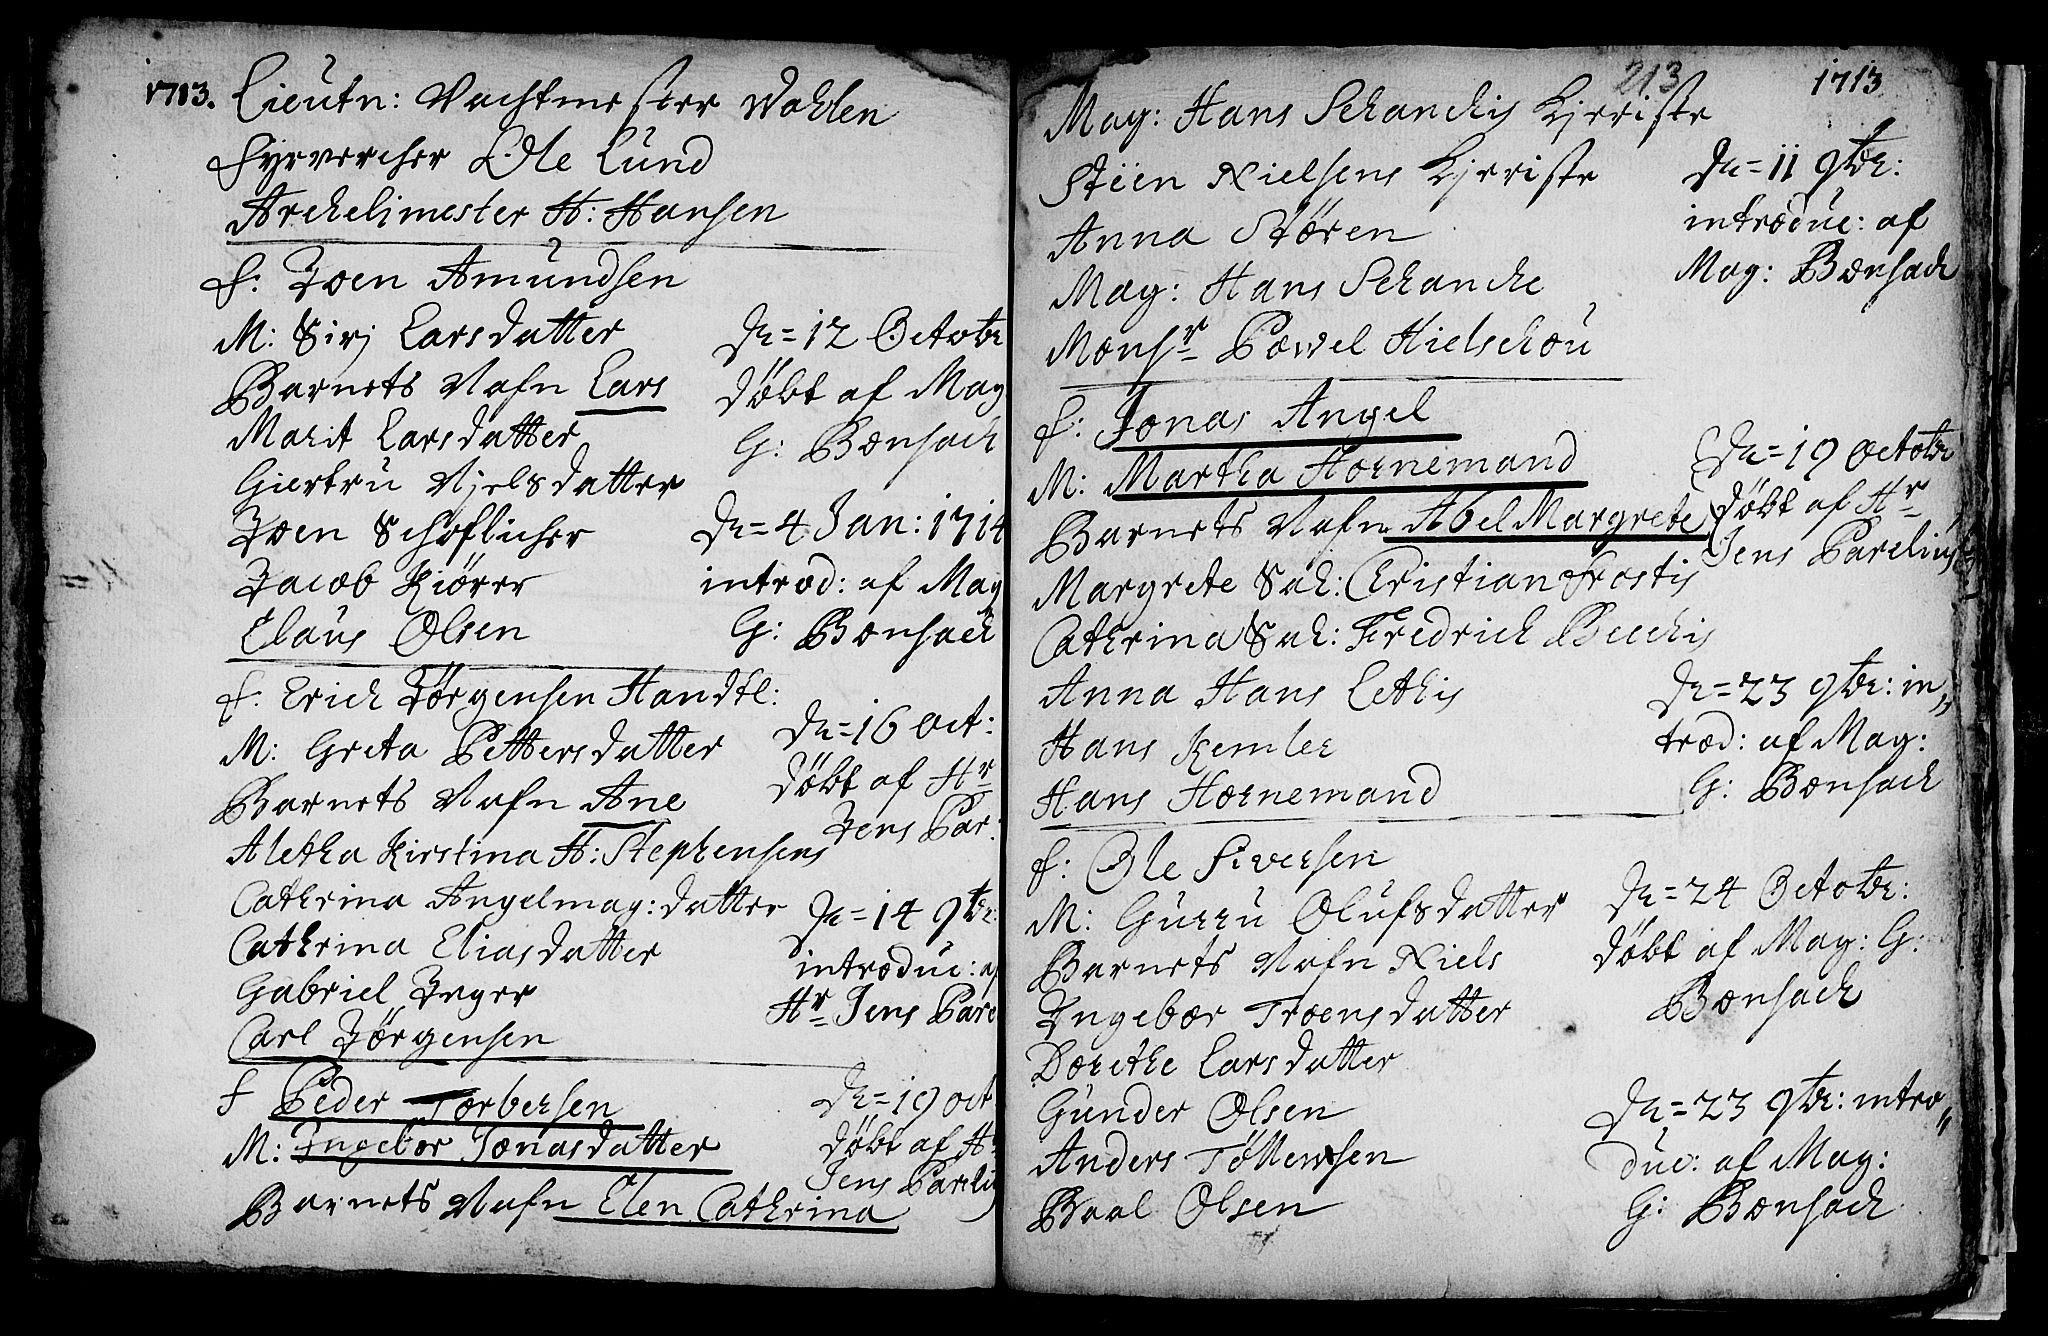 1713.
Lieutn: Vachtmester Wahlen
Fyrvercher Ole Lund
Archelimester H: Hansen
f: Joen Amundsen
M: Sirj Larsdatter
Barnets Nafn Lars
Marit Larsdatter
Giertru Njelsdatter
Joen Schoflicher
Jacob Kiører
Claus Olsen
Dn = 12 Octobr
døbt af Mag
G: Bænsach
Dn = 4 Jan: 1714
introd: af Mag
G: Bænsach
f: Erich Jørgensen Handtl:
M: Greta Pettersdatter
Barnets Nafn Ane
Aletha Kirstina H: Stephensens
Cathrina Angelmag: datter
Cathrina Eliasdatter
Gabriel Inger
Carl Jørgensen
Dn = 16 Oct:
døbt af Hr
Jens Par:
Dn = 14 9br:
introduc: af
Hr Jens Pare
f Peder Torbersen
M: Ingebor Jonasdatter
Barnets Nafn Elen Cathrina
Dn = 19 oct
døbt af H
Jens Pareliu
213
1713
Mag: Hans Schanchis Kjeriste
Steen Nielsens Kjeriste
Anna Støren
Mag: Hans Schanche
Monsr Powel Hielschou
Dn = 11 9br:
introduc: af
Mag: Bænsach
f: Jonas Angel
M: Martha Hornemand
Barnets Nafn Abel Margrete
Margrete Sal: Christian Frostis
Cathrina Sal: Fredrich Bechis
Anna Hans Lethis
Hans Kemler
Hans Hornemand
Dn = 19 Octobr
døbt af Hr
Jens Parelius
Dn = 23 9br: in„
trod: af Mag:
G: Bænsach
f: Ole Siversen
M: Gurru Olufsdatter
Barnets Nafn Niels
Ingebor Troensdatter
Dorethe Larsdatter
Gunder Olsen
Anders Tøllensen
Baal Olsen
Dn = 24 Octobr:
døbt af Mag: G:
Bænsach
Dn = 23 9br: intro„
duc: af Mag:
G: Bænsach